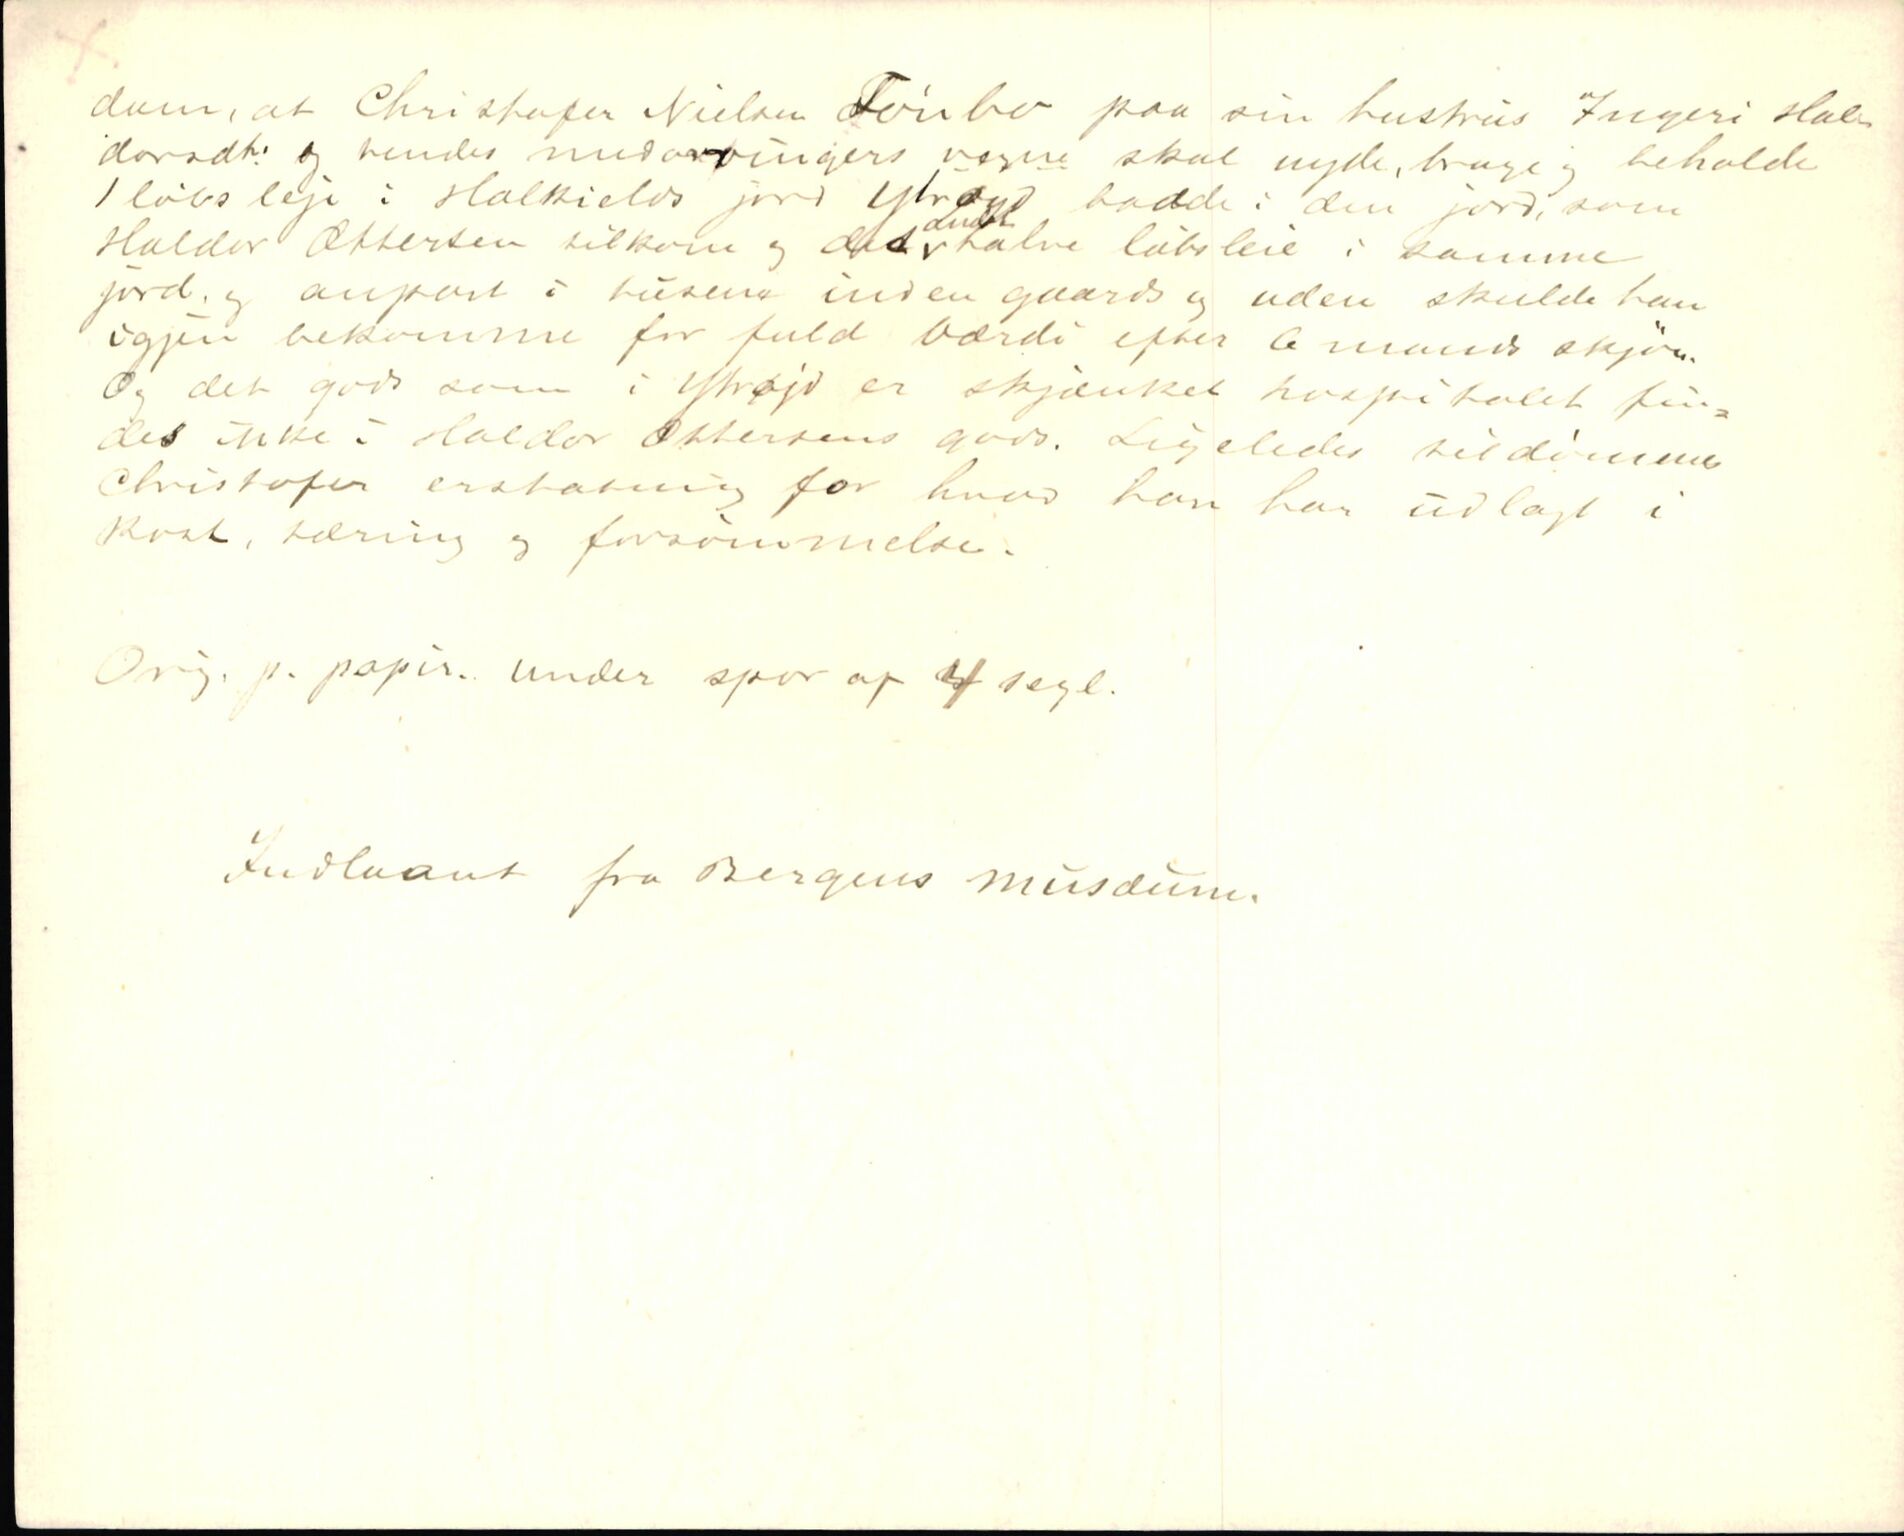 dom, at Christofer Nielsen Tönbo paa sin hustrus Ingeri Hal-
dorsdtr. og hendes medarvingers vegne skal nyde, bruge og beholde
1 löbs leje i Halkields jord Ytröyd baade i den jord, som
Haldor Ottersen tilkom og det andet halve löbsleie i samme
jord. og anpart i husene inden gaards og uden skulde han
igjen bekomme for fuld værdi efter 6 mands skjön.
Og det gods som i Ytröjd er skjænket hospitalet fin-
des ikke i Haldor Ottersens gods. Ligeledes tildömmes
Christofer erstatning for hvad han har udlagt i
kost, tæring og forsömmelse.
Orig. p. papir. under spor af 4 segl.
Indlaant fra Bergens Musæum.